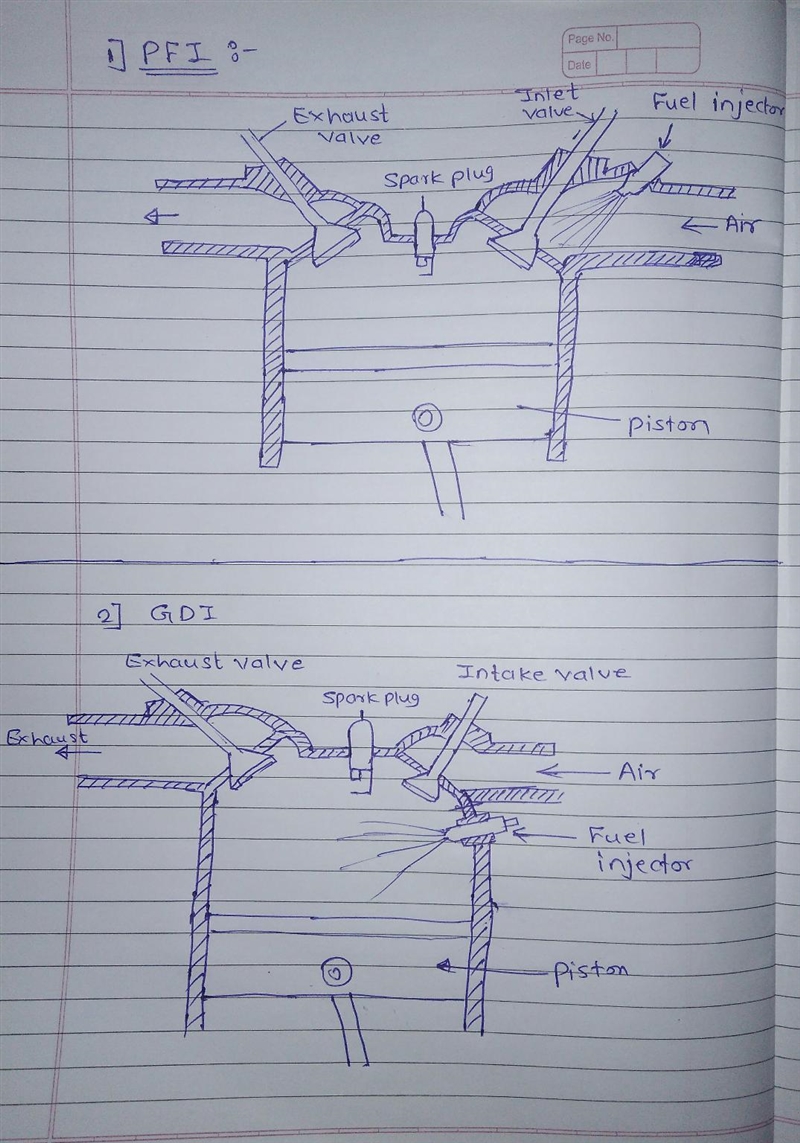 1] PFI :-
Page No.
Date
Exhaust
valve
Inlet
valve
Fuel injector
Spark plug
Air
Piston
2] GDI
Exhaust valve
Intake valve
Spark plug
Exhaust
Air
Fuel
injector
Piston